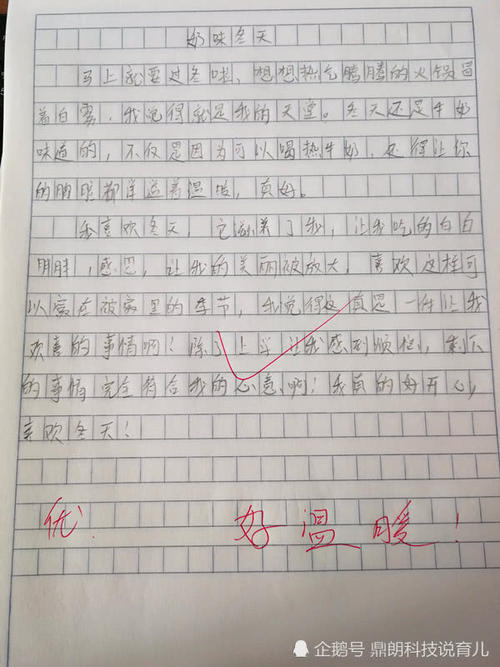 奶味冬天
马上就要过冬啦，想想热气腾腾的火锅冒
着白雾，我觉得就是我的天堂。冬天还是牛奶
味道的，不仅是因为可以喝热牛奶，还得让你
的眼眶都洋溢着温暖，真好。
我喜欢冬天，它滋养了我，让我吃的白白
胖胖，感恩，让我的美丽被放大，喜欢这样可
以窝在被窝里的季节，我觉得这真是一件让我
欢喜的事情啊！除了上学让我感到烦恼，剩下
的事情完全符合我的心意啊！我真的好开心，
喜欢冬天！
优.
好温暖！
企鹅号 鼎朗科技说育儿